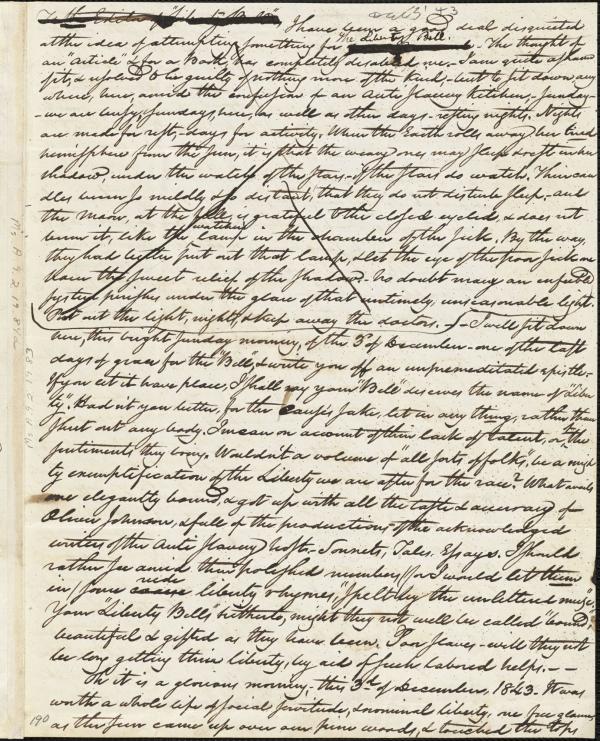 To the Editor of "Liberty Bell", I have been a good deal disquieted
at the idea of attempting something for The Liberty Bell. The thought of
an "Article" & for a Book, has completely disabled me. I am quite afraid
of it, & upbraid to be guilty of nothing more of the kind, but to sit down, any
where, here, amid the confusion of an Anti Slavery kitchen, Sunday
- we are busy, Sundays, here, as well as other days - resting nights. Nights
are made for rest, days for activity. When the Earth rolls away her tired
hemisphere from the sun, it is that the weary ones may sleep & rest in her
shadow, under the watch of the stars. - If the stars do watch. Their can
dles burn so mildly, & so distant, that they do not disturb sleep, and
the moon, at the full, is grateful to the closed eyelid, & does not
burn it, like the watching lamp in the chamber of the sick. By the way,
they had better put out that lamp, & let the eye of the poor sick one
have the sweet relief of the shadow. No doubt many an enfeebled
system perishes under the glare of that untimely, unseasonable light.
Put out the light, nights, & keep away the doctors. - I will sit down
here, this bright Sunday morning, of the 3d of December - one of the last
days of grace for the "Bell", & write you off an unpremeditated epistle.
If you let it have place, I shall say your "Bell" deserves the name of "Liber
ty". Had n't you better, for the cause's sake, let in any thing, rather than
shut out any body. I mean on account of their lack of talent, or the
sentiments they bring. Wouldn't a volume of "all sorts of folks", be a migh
ty exemplification of the Liberty we are after for the race? What avails
one elegantly bound, & got up with all the taste & accuracy of
Oliver Johnson, & full of the productions of the acknowledged
writers of the Anti Slavery hosts. - Sonnets, Tales. Essays. I should
rather see amid their polished numbers, (for I would let them
in) some rude liberty rhymes, "spelt by the unlettered muse".
Your "Liberty Bells" hitherto, might they not well be called "bound"
beautiful & gifted as they have been. Poor slaves - will they not
be long getting their liberty, by aid of such labored helps. - -
Oh it is a glorious morning - this 3d of December, 1843. It was
worth a whole life of social servitude, & nominal liberty, one free glance
as the sun came up over our pine woods, & touched the tops
190